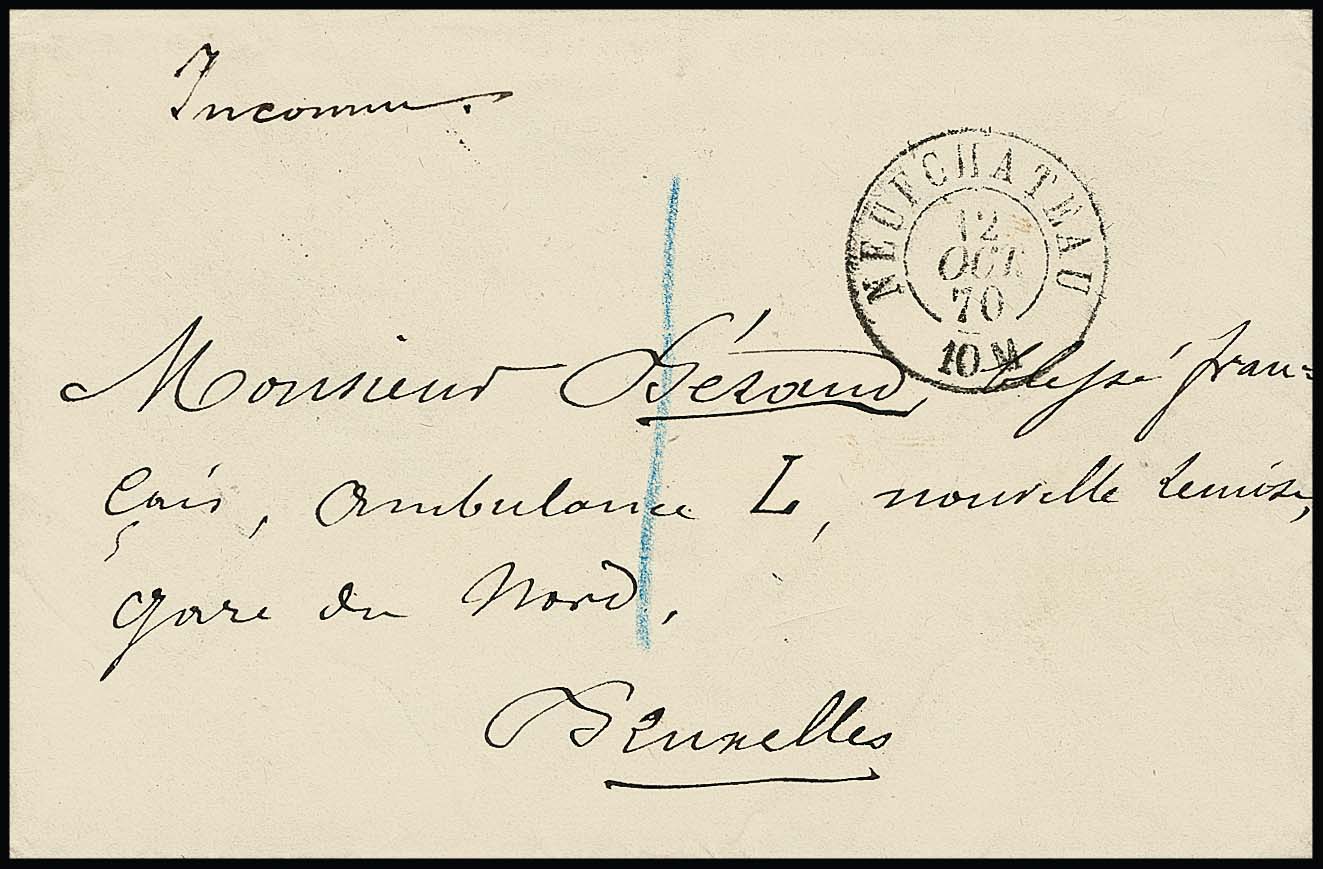 Inconnu.
NEUFCHATEAU
12
OCT
70
10 M
Monsieur Bézaud, blessé fran=
çais, Ambulance L, nouvelle remise,
gare du Nord,
Bruxelles